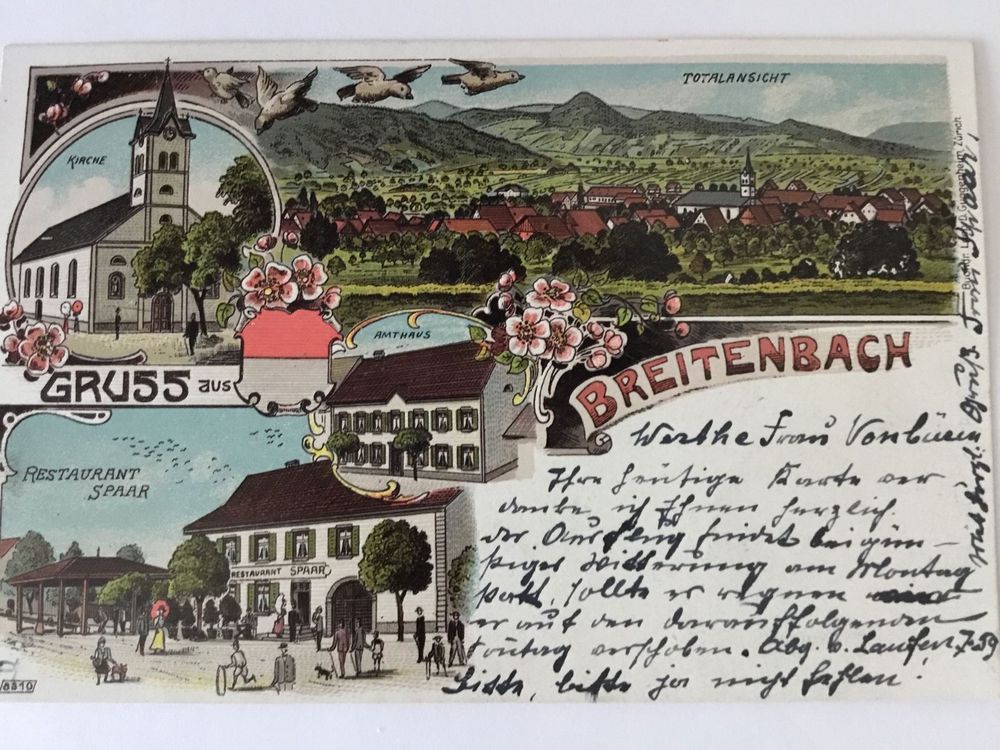 TOTALANSICHT
KIRCHE
AMTHAUS
GRUSS aus
BREITENBACH
RESTAURANT
SPAAR
RESTAURANT SPAAR
6810
Guggenheim, Zürich.
Werthe Frau
Ihre heutige Karte ver
danke ich Ihnen herzlich.
der Ausflug findet bei gün-
stiger Witterung am Montag
statt, sollte es regnen
er auf den darauffolgenden
verschoben. Abg. v. Laufen 7.59
Bitte, bitte ja nicht fehlen!
Frau Spaar